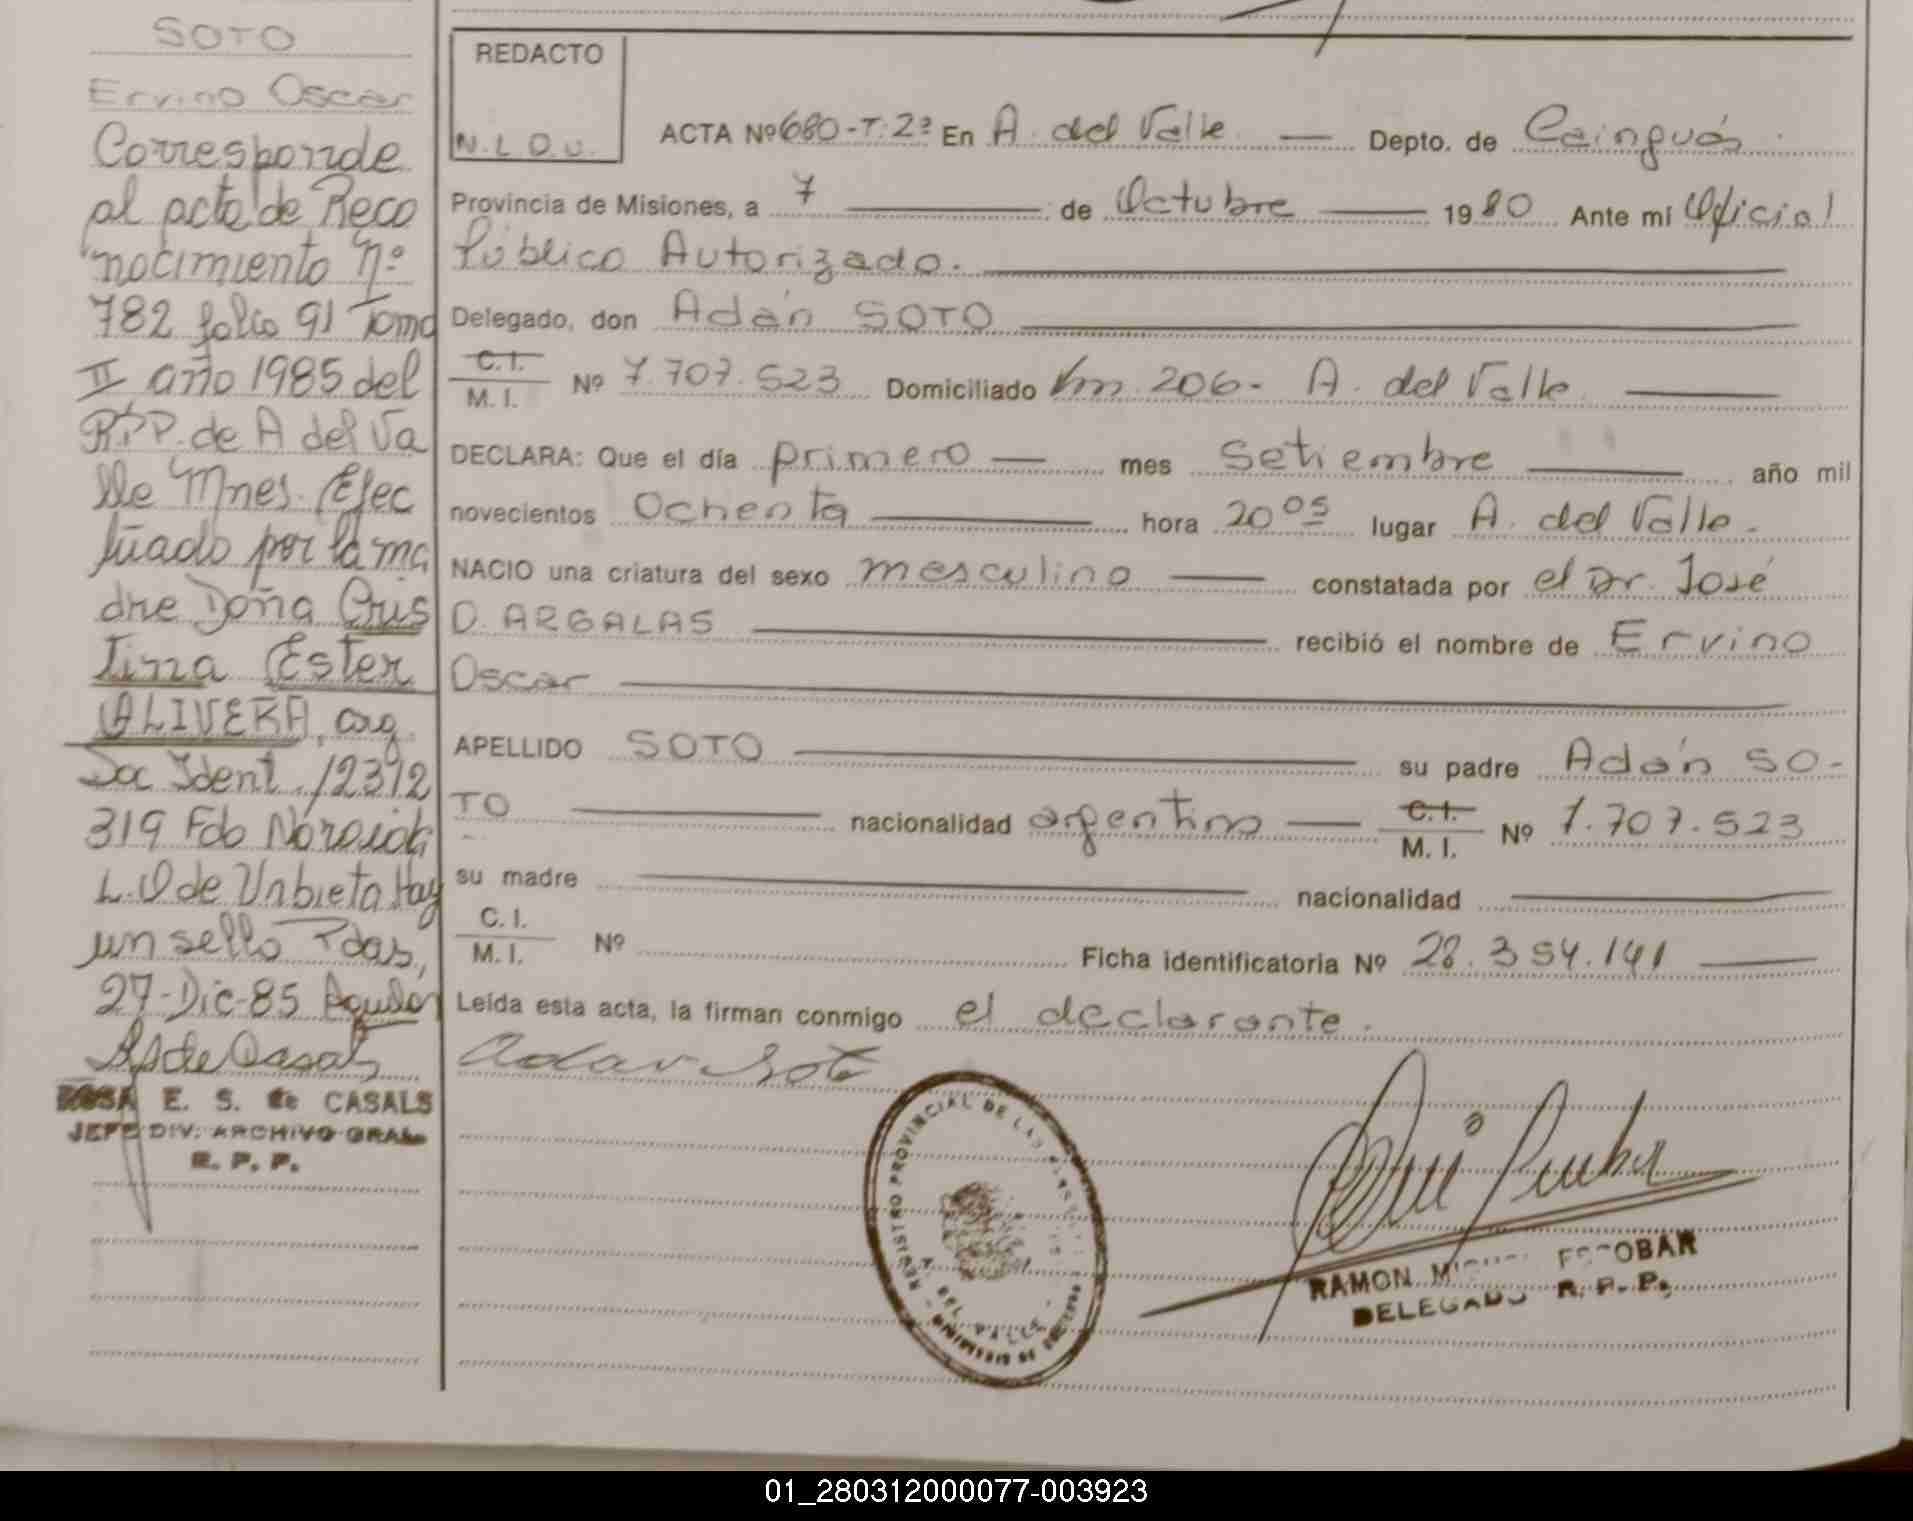 SOTO
Ervino Oscar
Corresponde
al acta de Reco
nocimiento Nº
782 folio 91 Tomo
II año 1985 del
R.P.P. de A del Va
lle Mnes. Efec
tuado por la ma
dre Doña Cris
tina Ester
OLIVERA, arg.
Doc Ident. 12312
319 Fdo
L.O de Urbieta Hay
un sello Pdas,
27-Dic-85
RS de Casals
ROSA E. S. de CASALS
JEFE DIV. ARCHIVO GRAL.
R. P. P.
REDACTO
N.L.O.U.
ACTA Nº 680-T:2º En A. del Valle. Depto. de Cainguás.
Provincia de Misiones, a 7 de Octubre 1980 Ante mí Oficial
Público Autorizado.
Delegado, don Adán SOTO
C.I.
M.I. Nº 7.707.523 Domiciliado Km. 206- A. del Valle.
DECLARA: Que el día primero mes Setiembre año mil
novecientos Ochenta hora 20 05 lugar A. del Valle.
NACIO una criatura del sexo masculino constatada por el Dr. José
D. ARGALAS recibió el nombre de Ervino
Oscar
APELLIDO SOTO su padre Adán SO-
TO nacionalidad argentino C.I. M.I. Nº 7.707.523
su madre nacionalidad
C.I.
M.I. Nº Ficha identificatoria Nº 28.354.141
Leída esta acta, la firman conmigo el declarante.
Adan Soto
REGISTRO PROVINCIAL DE LAS
A. DEL VALLE
RAMON ESCOBAR
DELEGADO R. P. P.
01_280312000077-003923